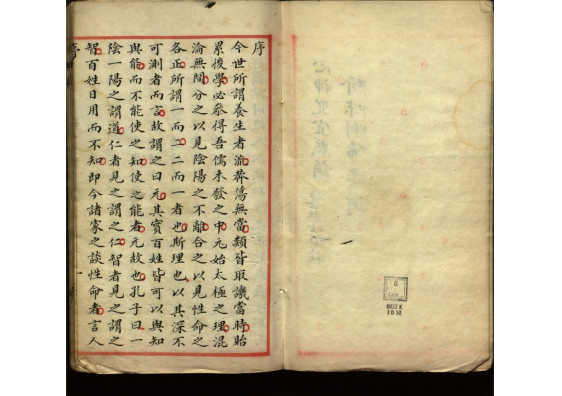 序
今世所謂養生者流莽蕩無當類皆取譏當時貽
累後學必參得吾儒未發之中元始太極之理混
淪無間分之以見陰陽之不離合之以見性命之
各正所謂一而二二而一者也斯理也以其深不
可測者而言故謂之曰元其實百姓皆可以與知
與能而不能使之知使之能者元故也孔子曰一
陰一陽之謂道仁者見之謂之仁智者見之謂之
智百姓日用而不知即今諸家之談性命者言人
序